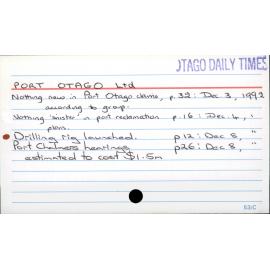 OTAGO DAILY TIMES
PORT OTAGO Ltd
Nothing new in Port Otago claims, p.32: Dec 3, 1992
according to group.
Nothing 'sinister' in port reclamation p.16: Dec. 4, "
plans.
Drilling rig launched. p12: Dec 5, "
Port Chalmers hearings p26: Dec 8, "
estimated to cost $1.5m
63/C